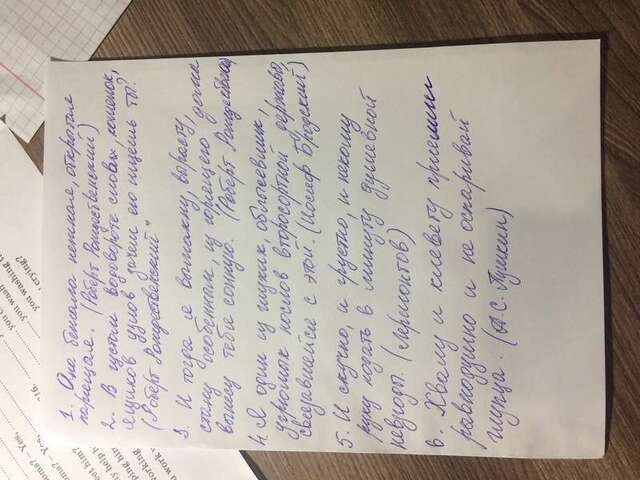 oms? – Yes,
– Yes,
216.
you washing t
you washing the
crying?
eet him?
ly help
ping him
working
u work
1. Она бежала нежная, открытая
парящая. (Роберт Рождественский)
2. В густом водовороте слов, кошелок,
ящиков узлов зачем его ищешь ты?
(Роберт Рождественский"
3. И тогда я вымахну, вырасту,
стану особенным, из горящего дома
вынесу тебя сонную. (Роберт Рождественс
4. Я один из глухих, облысевших,
угрюмых послов второсортной державы,
связавшейся с этой. (Иосиф Бродский)
5. И скучно, и грустно, и некому
руку подать в минуту душевной
невзгоды. (Лермонтов)
6. Хвалу и клевету приемли
равнодушно и не оспаривай
глупца. (А.С. Пушкин)